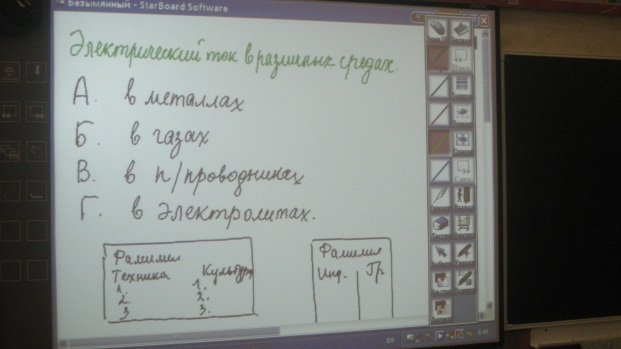 Безымянный - StarBoard Software
Электрический ток в различных средах.
А. в металлах
Б. в газах
В. в п/проводниках
Г. в электролитах.
Фамилия
Техника Культура
1. 1.
2. 2.
3. 3.
Фамилия
Инд. Гр.
EN